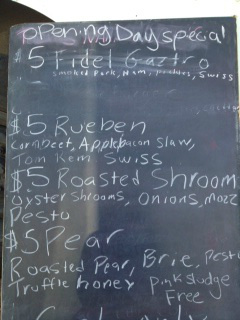 Opening Day special
$5 Fidel Gaztro
Smoked Pork, Ham, pickles, Swiss
$5 Rueben
Corn Beef, Apple bacon Slaw,
Tom Kem Swiss
$5 Roasted Shroom
Oyster Shrooms, Onions, Mozz
Pesto
$5 Pear
Roasted Pear, Brie, Pesto
Truffle honey Pink Sludge
Free